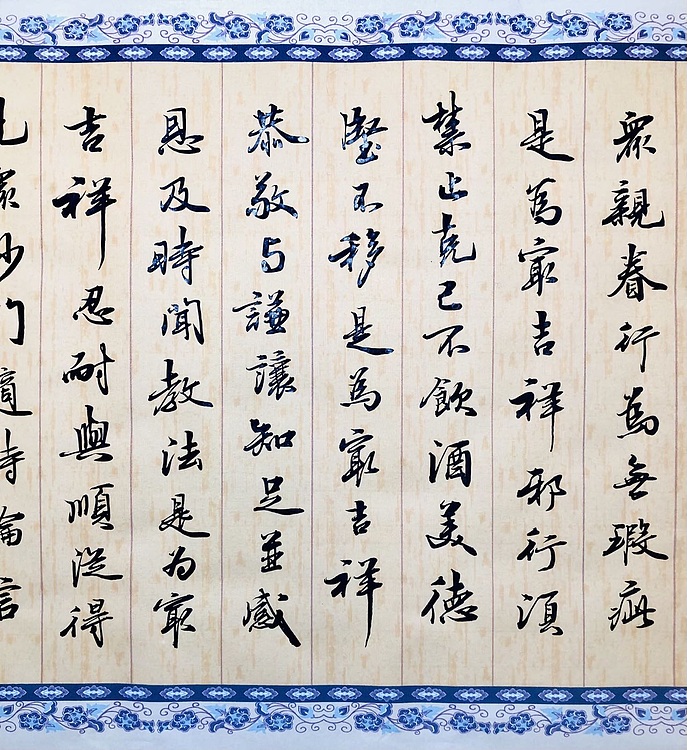 眾親眷行為無瑕疵
是為最吉祥邪行須
禁止克己不飲酒美德
堅不移是為最吉祥
恭敬与謙讓知足並感
恩及時聞教法是为最
吉祥忍耐與順從得
見眾沙门適時論言